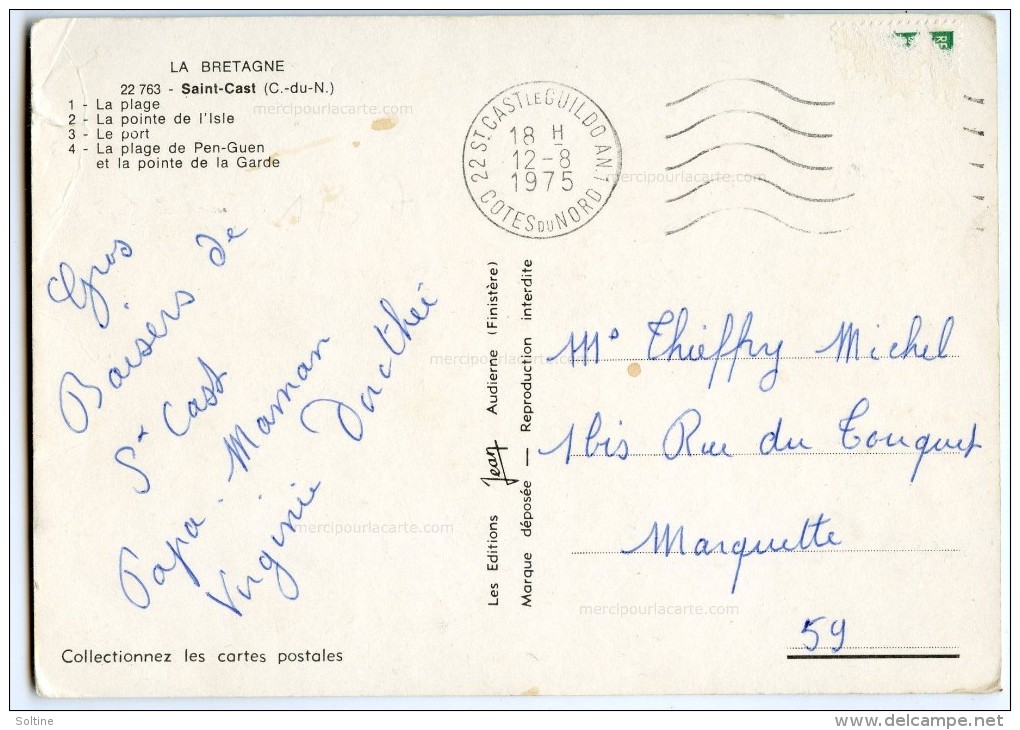 LA BRETAGNE
22 763 - Saint-Cast (C.-du-N.)
1 - La plage
2 - La pointe de l'Isle
3 - Le port
4 - La plage de Pen-Guen
et la pointe de la Garde
mercipourlacarte.com
22 ST CAST LE GUILDO AN.1
18 H
12-8
1975
COTES DU NORD
mercipourlacarte.com
Gros
Baisers de
St Cast
Papa. Maman
Virginie Dorothée
mercipourlacarte.com
mercipourlacarte.com
Les Editions Jean Audierne (Finistère)
Marque déposée — Reproduction interdite
Mr Thieffry Michel
1bis Rue du Touquet
Marquette
59
mercipourlacarte.com
Collectionnez les cartes postales
Soltine
www.delcampe.net